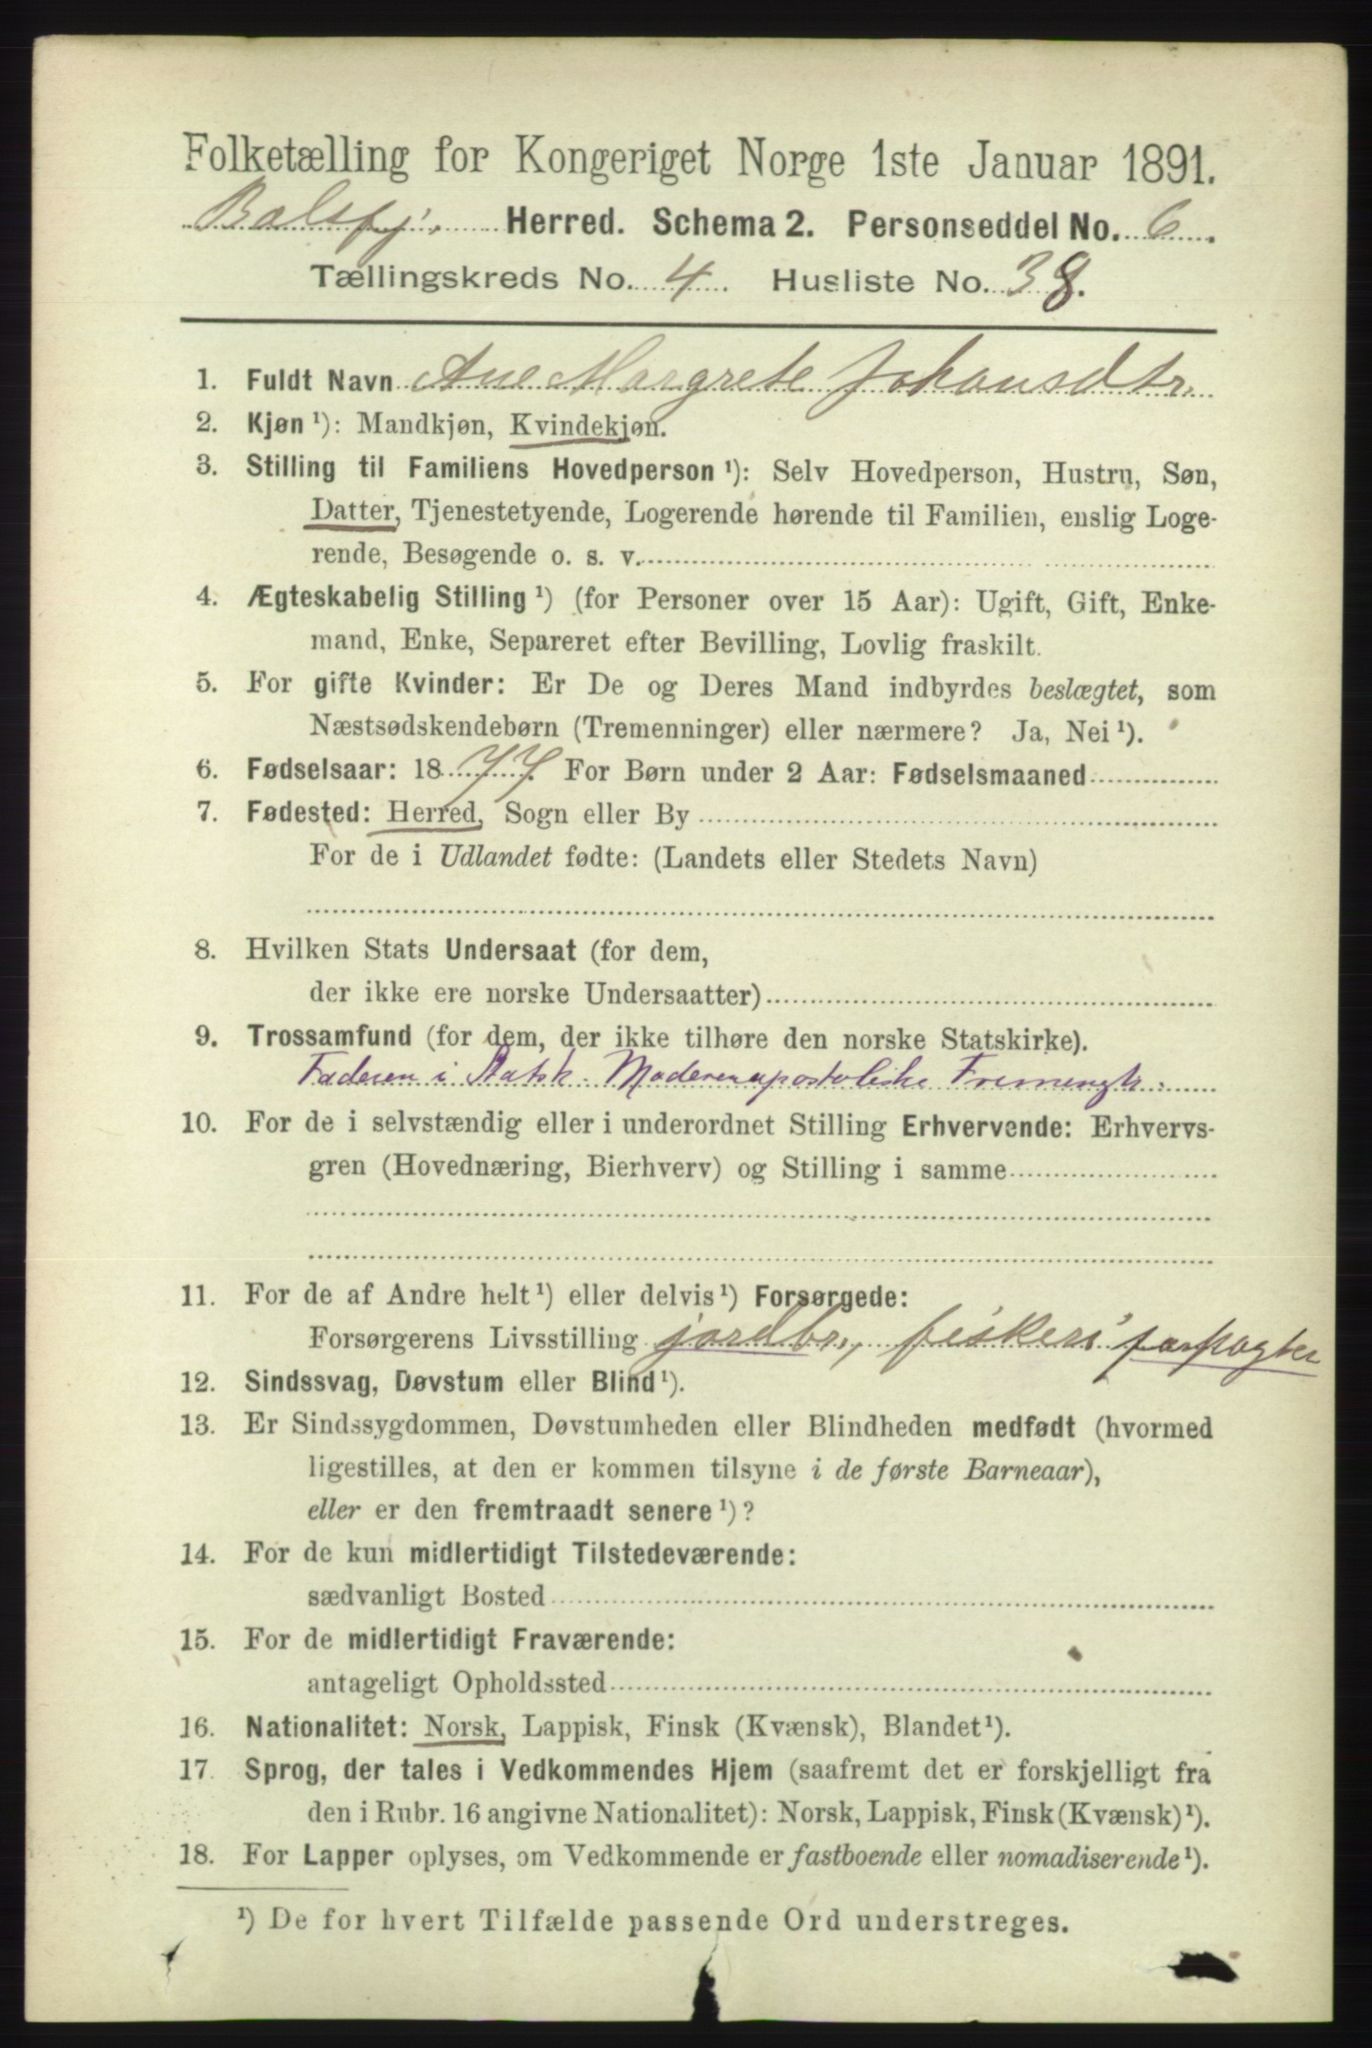 Folketælling for Kongeriget Norge 1ste Januar 1891.
Balsfj. Herred. Schema 2. Personseddel No. 6.
Tællingskreds No. 4. Husliste No. 38.
1. Fuldt Navn Ane Margrete Johansdtr.
2. Kjøn ¹): Mandkjøn, Kvindekjøn.
3. Stilling til Familiens Hovedperson ¹): Selv Hovedperson, Hustru, Søn,
Datter, Tjenestetyende, Logerende hørende til Familien, enslig Loge-
rende, Besøgende o. s. v.
4. Ægteskabelig Stilling ¹) (for Personer over 15 Aar): Ugift, Gift, Enke-
mand, Enke, Separeret efter Bevilling, Lovlig fraskilt.
5. For gifte Kvinder: Er De og Deres Mand indbyrdes beslægtet, som
Næstsødskendebørn (Tremenninger) eller nærmere? Ja, Nei ¹).
6. Fødselsaar: 1877. For Børn under 2 Aar: Fødselsmaaned
7. Fødested: Herred, Sogn eller By
For de i Udlandet fødte: (Landets eller Stedets Navn)
8. Hvilken Stats Undersaat (for dem,
der ikke ere norske Undersaatter)
9. Trossamfund (for dem, der ikke tilhøre den norske Statskirke).
Faderen i Statsk. Moderen apostoliske Frimenigh.
10. For de i selvstændig eller i underordnet Stilling Erhvervende: Erhvervs-
gren (Hovednæring, Bierhverv) og Stilling i samme
11. For de af Andre helt ¹) eller delvis ¹) Forsørgede:
Forsørgerens Livsstilling jordbr., fiskeri forpagter
12. Sindssvag, Døvstum eller Blind ¹).
13. Er Sindssygdommen, Døvstumheden eller Blindheden medfødt (hvormed
ligestilles, at den er kommen tilsyne i de første Barneaar),
eller er den fremtraadt senere ¹)?
14. For de kun midlertidigt Tilstedeværende:
sædvanligt Bosted
15. For de midlertidigt Fraværende:
antageligt Opholdssted
16. Nationalitet: Norsk, Lappisk, Finsk (Kvænsk), Blandet ¹).
17. Sprog, der tales i Vedkommendes Hjem (saafremt det er forskjelligt fra
den i Rubr. 16 angivne Nationalitet): Norsk, Lappisk, Finsk (Kvænsk) ¹).
18. For Lapper oplyses, om Vedkommende er fastboende eller nomadiserende ¹).
¹) De for hvert Tilfælde passende Ord understreges.